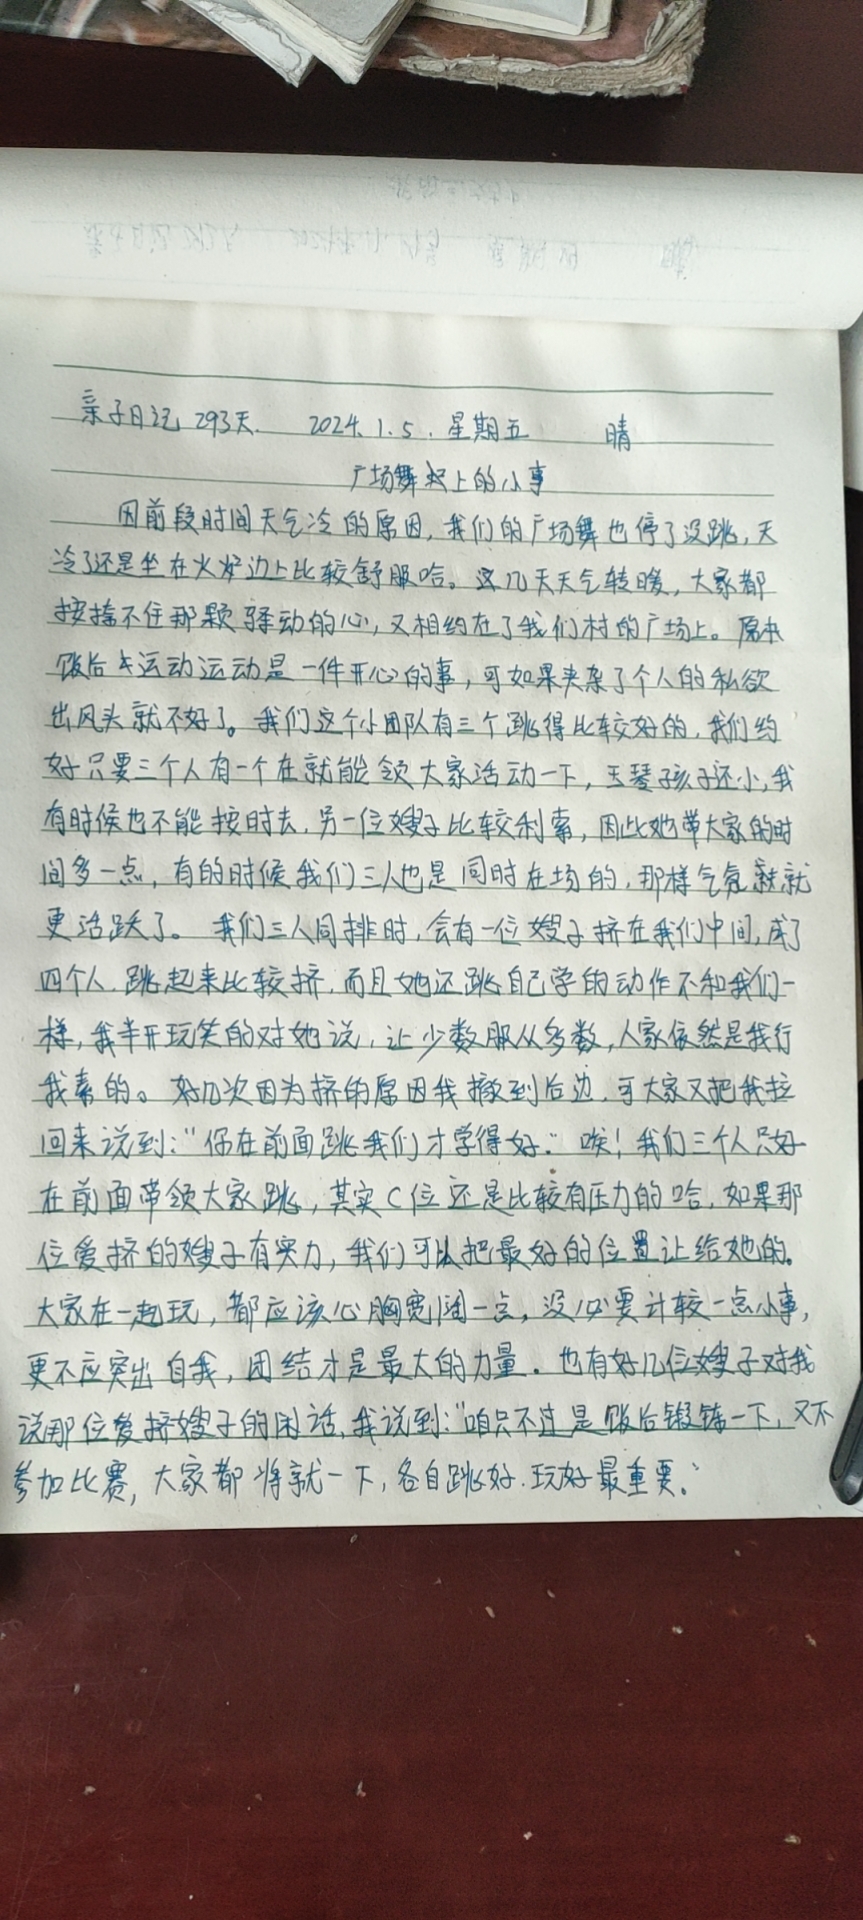 亲子日记 293天. 2024.1.5. 星期五 晴
广场舞上的小事
因前段时间天气冷的原因,我们的广场舞也停了没跳,天
冷了还是坐在火炉边上比较舒服哈。这几天天气转暖,大家都
按捺不住那颗骚动的心,又相约在了我们村的广场上。原本
饭后运动运动是一件开心的事,可如果夹杂了个人的私欲
出风头就不好了。我们这个小团队有三个跳得比较好的,我们约
好只要三个人有一个在就能领大家活动一下,玉琴孩子还小,我
有时候也不能按时去,另一位嫂子比较利索,因此她带大家的时
间多一点,有的时候我们三人也是同时在场的,那样气氛就
更活跃了。我们三人同排时,会有一位嫂子挤在我们中间,成了
四个人,跳起来比较挤,而且她还跳自己学的动作不和我们一
样,我半开玩笑的对她说,让少数服从多数,人家依然是我行
我素的。好几次因为挤的原因我撤到后边,可大家又把我拉
回来说到:"你在前面跳我们才学得好."唉!我们三个人只好
在前面带领大家跳,其实C位还是比较有压力的哈,如果那
位爱挤的嫂子有实力,我们可以把最好的位置让给她的。
大家在一起玩,都应该心胸宽阔一点,没必要计较一点小事,
更不应突出自我,团结才是最大的力量.也有好几位嫂子对我
说那位爱挤嫂子的闲话,我说到:"咱只不过是饭后锻炼一下,又不
参加比赛,大家都将就一下,各自跳好.玩好最重要."